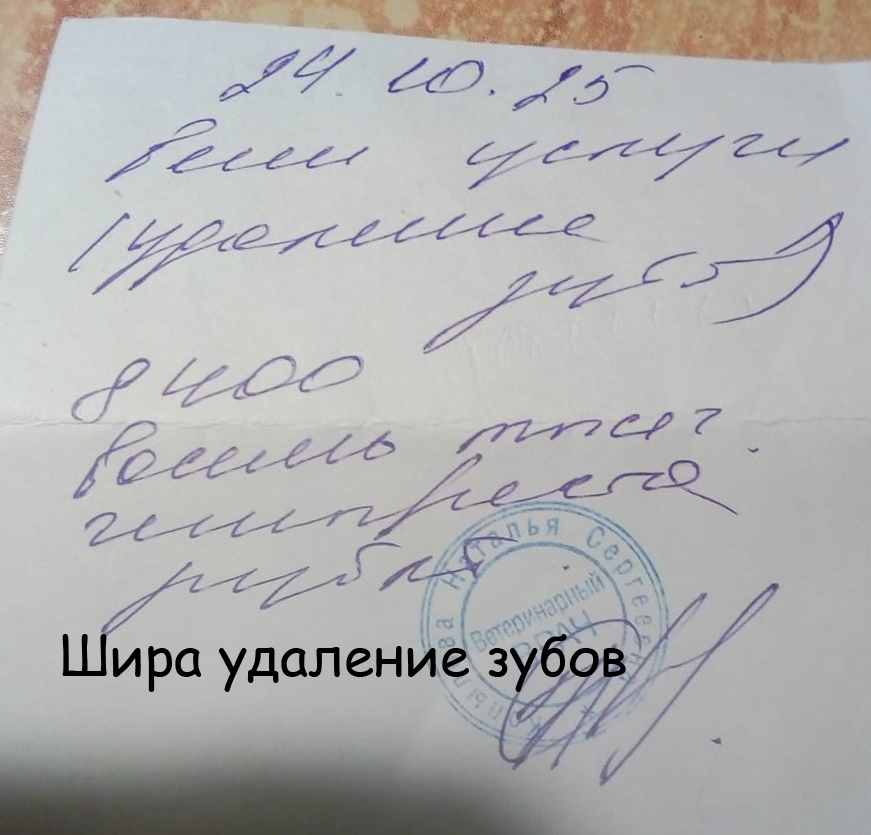 24.10.25
Вет услуги
(удаление
зубов)
8400
Восемь тысяч
четыреста
рублей
Наталья Сергеевна
Ветеринарный
ВРАЧ
Шира удаление зубов